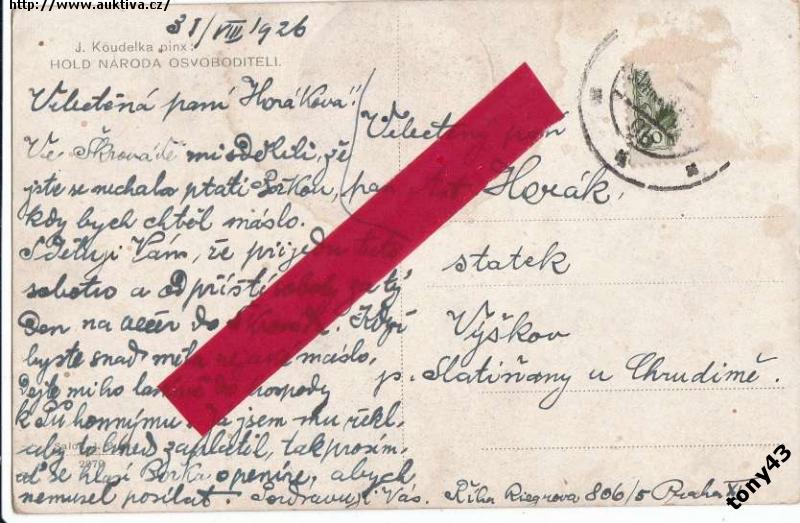 http://www.auktiva.cz/
31/VIII 1926
J. Koudelka pinx:
HOLD NÁRODA OSVOBODITELI.
Velectěná paní Horáková!
Ve Škrovádě mi sdělili, že
jste se nechala ptáti Bořkou,
kdy bych chtěl máslo.
Sděluji Vám, že přijedu tuto
sobotu a od příští soboty za tý
den na večer do Škrovád. Když
byste snad měla nějaké máslo,
dejte mi ho laskavě do hospody
k Půhonnýmu. Já jsem mu řekl,
aby to hned zaplatil, tak prosím,
ať se hlásí Bořka o peníze, abych
nemusel posílat. Pozdravuji Vás. Říha Riegrova 806/5 Praha
Velectěný pan
pan Ant. Horák,
statek
Výškov
p. Slatiňany u Chrudimě.
Salon
60
tony43